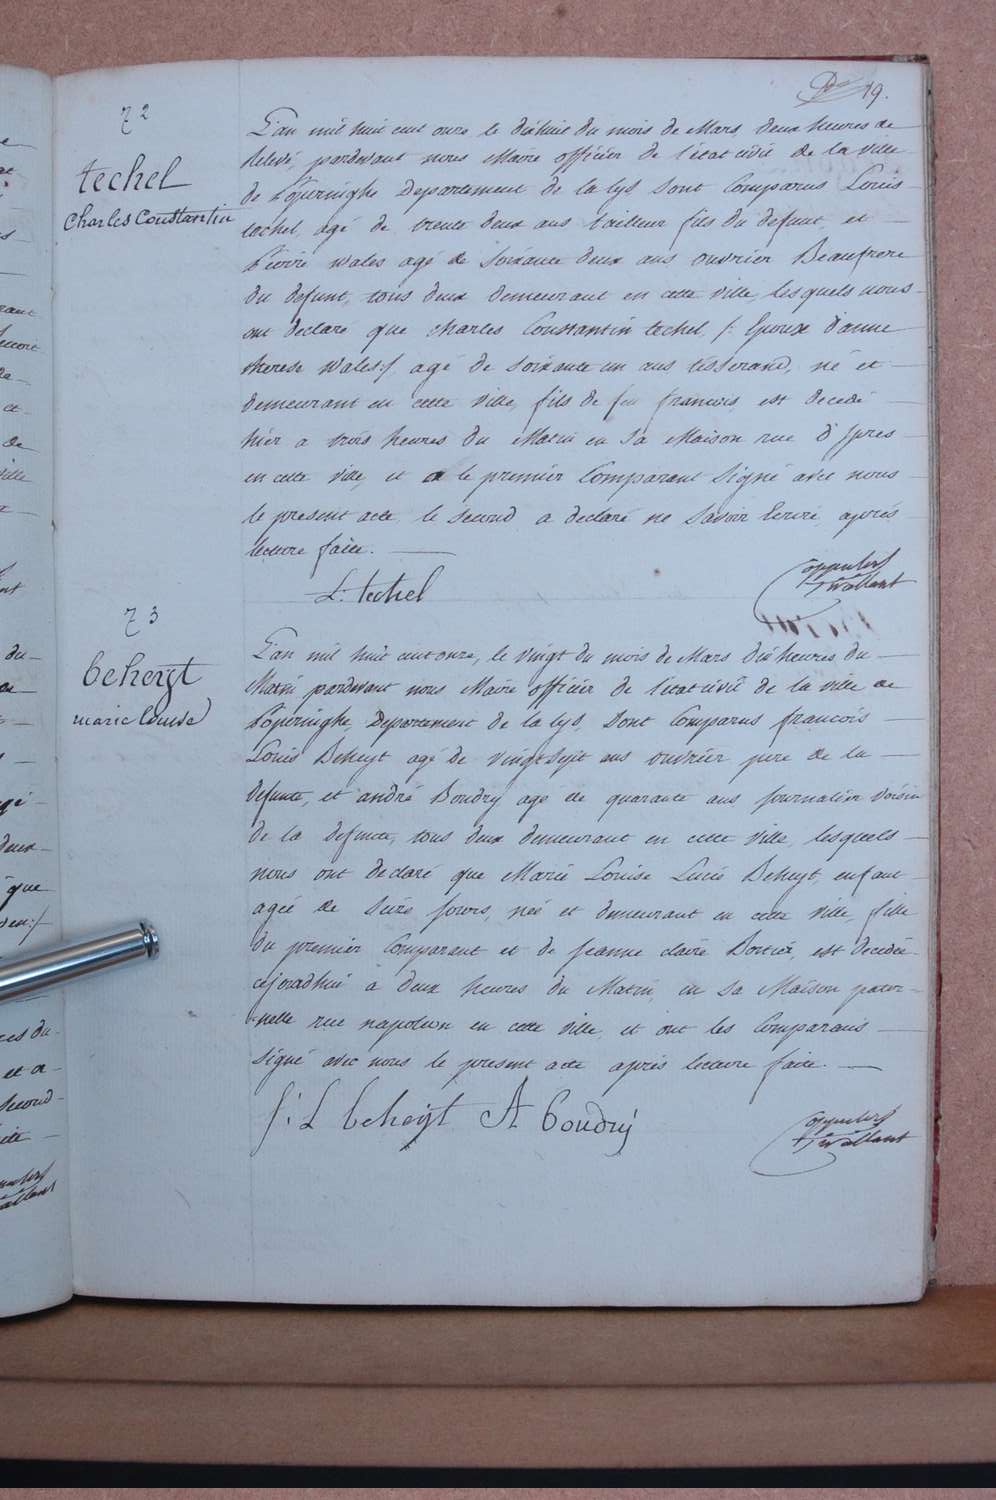 19.
72
techel
Charles Constantin
L'an mil huit cent onze le dixhuit du mois de Mars, deux heures de
Relevé, pardevant nous Maire officier de l'état civil de la ville
de Poperinghe Departement de la lys sont Comparus Louis
techel, agé de trente deux ans tailleur fils du defunt, et
Pierre wales agé de soixante deux ans ouvrier Beaufrere
du defunt, tous deux demeurant en cette ville, lesquels nous
ont declaré que Charles Constantin techel /: Epoux d'anne
therese Wales:/ agé de soixante un ans tisserand, né et
demeurant en cette ville, fils de feu francois, est decedé
hier a trois heures du Matin en sa Maison rue d'Ipres
en cette ville, et a le premier Comparant signé avec nous
le present acte, le second a declaré ne savoir Ecrire, après
lecture faite.
L. techel
73
beheyt
marie louise
L'an mil huit cent onze, le vingt du mois de Mars dix heures du
Matin pardevant nous Maire officier de l'état civil de la ville de
Poperinghe, Departement de la lys, Sont Comparus francois
Louis Beheyt agé de vingt sept ans ouvrier pere de la
defunte, et andré Boudry agé de quarante ans journalier Voisin
de la defunte, tous deux demeurant en cette ville, lesquels
nous ont declaré que Marie Louise Lucie Beheyt, enfant
agée de seize jours, née et demeurant en cette ville, fille
du premier Comparant et de Jeanne claire Bortier, est decedée
cejordhui à deux heures du Matin, en sa Maison pater-
nelle rue napoleon en cette ville, et ont les Comparans
signé avec nous le present acte après lecture faite.
f: L beheyt A boudry